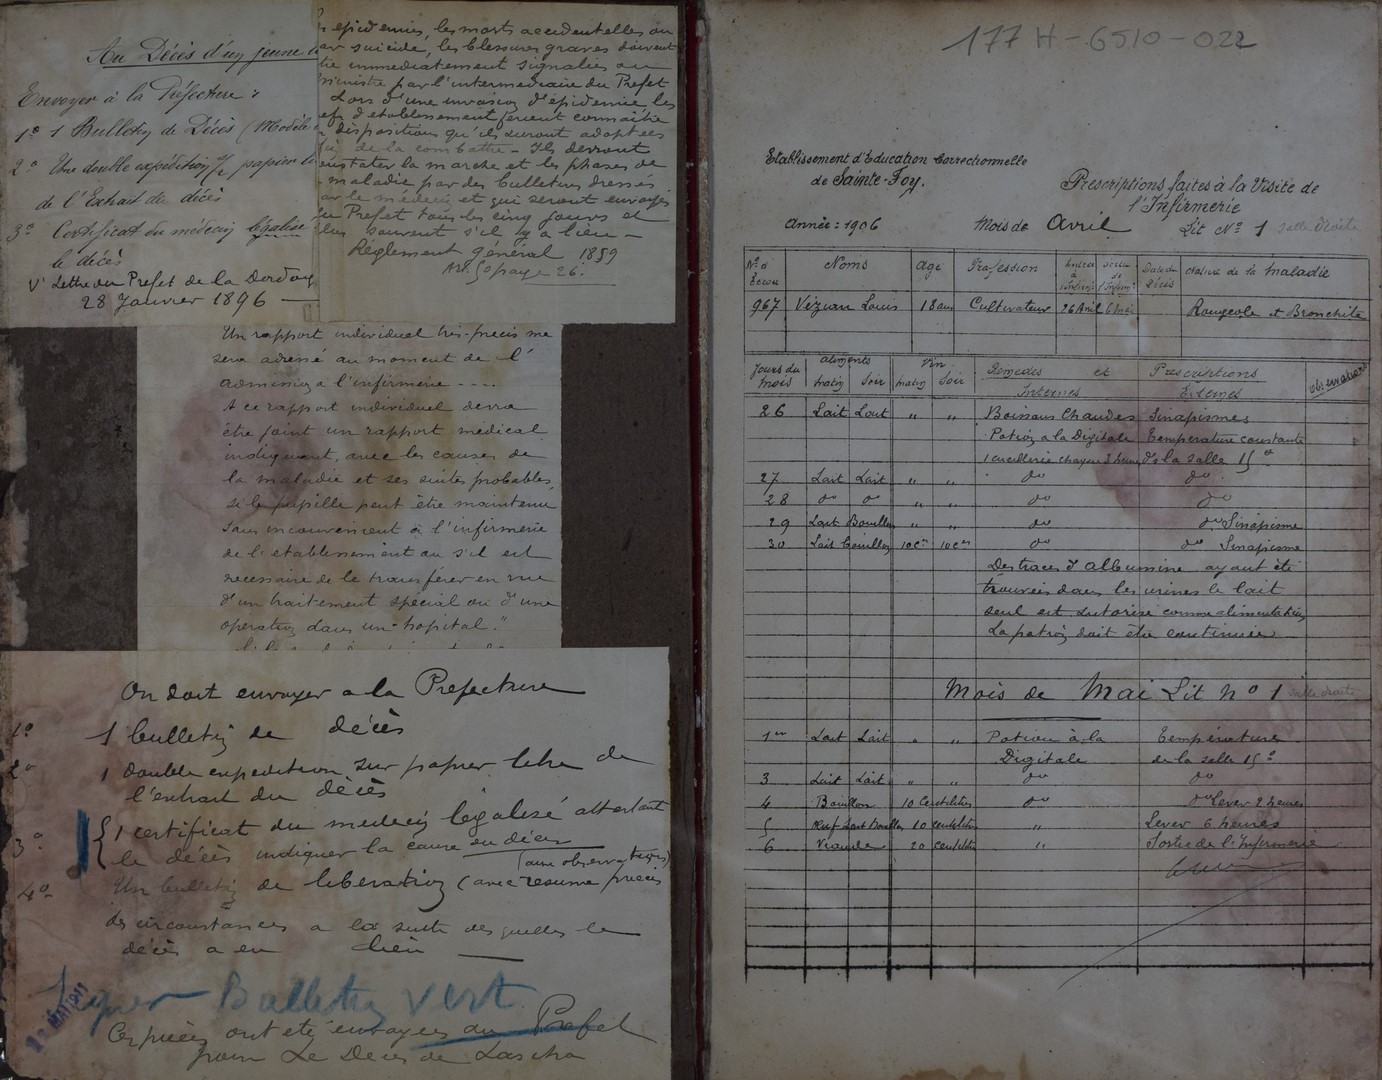 Au Décès d'un jeune
Envoyer à la Préfecture :
1º 1 Bulletin de Décès (Modèle
2º Une double expédition s/ papier
de l'Extrait du décès
3º Certificat du médecin légalisé
le décès
Vr Lettre du Prefet de la Dordog
28 Janvier 1896
epidemies, les morts accidentelles ou
suicide, les blessures graves doivent
immediatement signalées au
ministre par l'intermediaire du Prefet
Lors d'une invasion d'épidemie les
d'etablissement feront connaitre
dispositions qu'ils auront adoptées
de la combattre - Ils devront
constater la marche et les phases de
maladie par des bulletins dressés
le médecin et qui seront envoyés
Prefet tous les cinq jours et
plus souvent s'il y a lieu -
Réglement général 1859
Art. 50 page 26.
Un rapport individuel très-précis me
sera adressé au moment de l'
admission à l'infirmerie ----
A ce rapport individuel devra
être joint un rapport médical
indiquant, avec les causes de
la maladie et ses suites probables,
si le pupille peut être maintenu
sans inconvenient à l'infirmerie
de l'etablissement ou s'il est
necessaire de le transférer en vue
d'un traitement spécial ou d'une
operation dans un hopital."
On doit envoyer a la Prefecture
1º 1 bulletin de décès
2º 1 double expedition sur papier libre de
l'extrait du décès
3º 1 certificat du medecin légalisé attestant
le décès indiquer la cause du décès
(aux observations)
4º Un bulletin de liberation (avec resumé précis
des circonstances a la suite desquelles le
décès a eu lieu
Bulletin vert
Ces pièces ont été envoyées au Prefet
pour Le Deces de
MAI 1911
177 H - 6510 - 022
Etablissement d'Education Correctionnelle
de Sainte-Foy.
Prescriptions faites à la Visite de
l'Infirmerie
Année : 1906 Mois de Avril Lit Nº 1 salle droite
Nº d'Ecrou Noms Age Profession Entrée à l'Infirm. Sortie de l'Infirm. Date du Décès Nature de la Maladie
967 Louis 18 ans Cultivateur 26 Avril 6 Mai Rougeole et Bronchite
Jours du mois Aliments matin Soir Vin matin Soir Remèdes et Prescriptions Internes Externes Observations
26 Lait Lait " " Boissons Chaudes Sinapismes
Potion a la Digitale Temperature constante
1 cuillerie chaque 2 heures de la salle 15º
27 Lait Lait " " dº dº
28 dº dº " " dº dº
29 Lait Bouillon " " dº dº Sinapisme
30 Lait Bouillon 10 cs 10 cs dº dº Sinapisme
Des traces d'Albumine ayant été
trouvées dans les urines le lait
seul est autorisé comme alimentation
La potion doit être continuée
Mois de Mai Lit nº 1 salle droite
1er Lait Lait " " Potion à la Température
Digitale de la salle 15º
3 Lait Lait " " dº dº
4 Bouillon 10 Centilitres dº dº Lever 2 heures
5 Lait Bouillon 10 centilitres " Lever 6 heures
6 Viande 20 centilitres " Sortie de l'Infirmerie